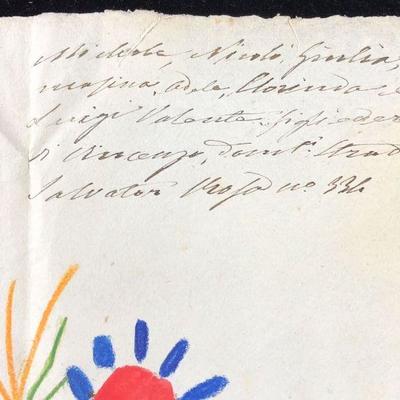 Michele, Nicolò, Giulia,
masina, adele, Clorinda e
Luigi Valente figli ed er
di Vincenzo, domti. Strad
Salvator Rosa no. 336